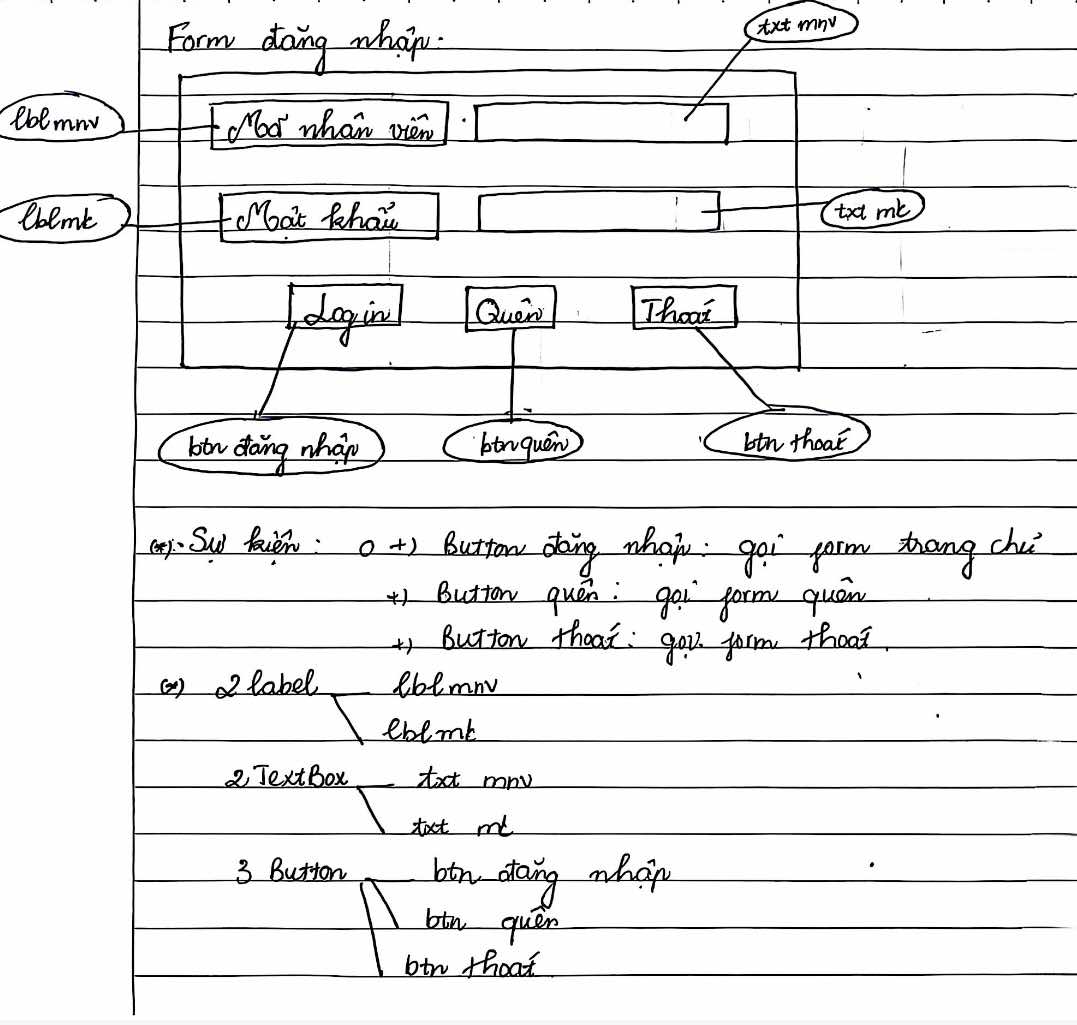 Form đăng nhập:
txt mnv
lbl mnv
Mã nhân viên
lblmk
Mật khẩu
txt mk
Login
Quên
Thoát
btn đăng nhập
btn quên
btn thoát
(*):- Sự kiện : 0 +) Button đăng nhập : gọi form trang chủ
+) Button quên : gọi form quên
+) Button thoát : gọi form thoát.
(*) 2 label lblmnv
lblmk
2 TextBox txt mnv
txt mk
3 Button btn đăng nhập
btn quên
btn thoát